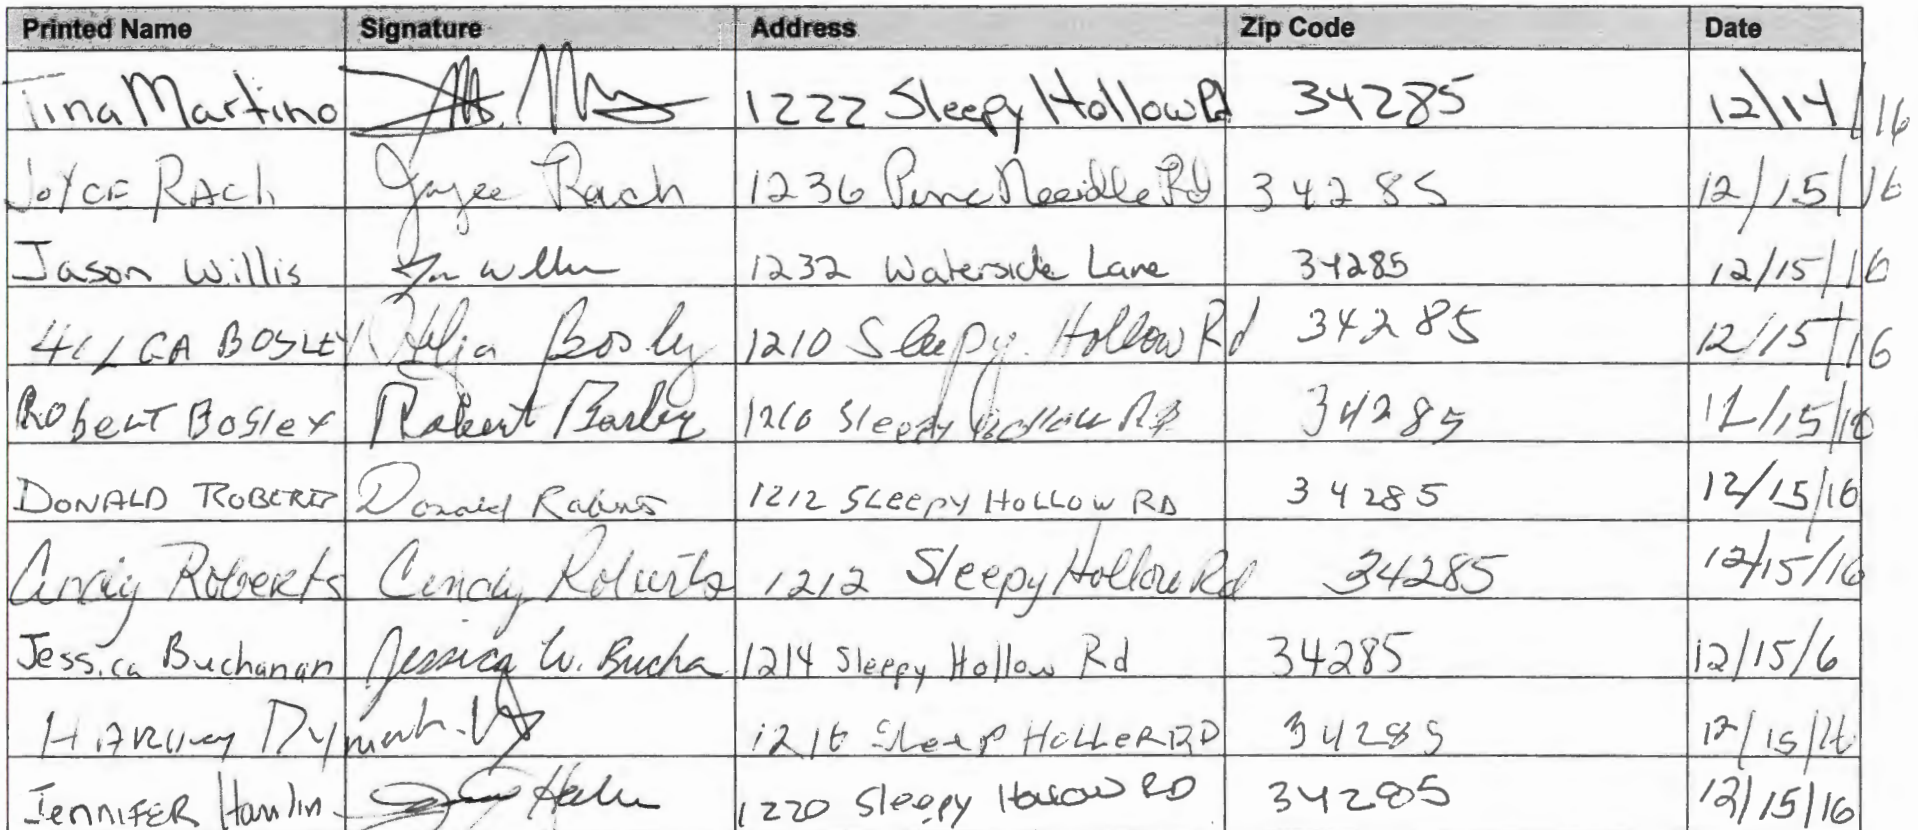 Printed Name Signature Address Zip Code Date
Tina Martino 1222 Sleepy Hollow Rd 34285 12/14/16
Joyce Rach Joyce Rach 1236 Pine Needle Rd 34285 12/15/16
Jason Willis 1232 Waterside Lane 34285 12/15/16
BOSLEY Bosley 1210 Sleepy Hollow Rd 34285 12/15/16
Robert Bosley Robert Bosley 1210 Sleepy Hollow RD 34285 12/15/16
DONALD ROBERTS Donald Roberts 1212 SLEEPY HOLLOW RD 34285 12/15/16
Cindy Roberts Cindy Roberts 1212 Sleepy Hollow Rd 34285 12/15/16
Jessica Buchanan Jessica W. Bucha 1214 Sleepy Hollow Rd 34285 12/15/6
Dyment 1216 Sleep HOLLER RD 34285 12/15/16
JENNIFER Hamlin 1220 Sleepy Hollow RD 34285 12/15/16